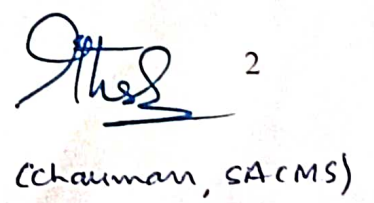 2
(Chairman, SACMS)